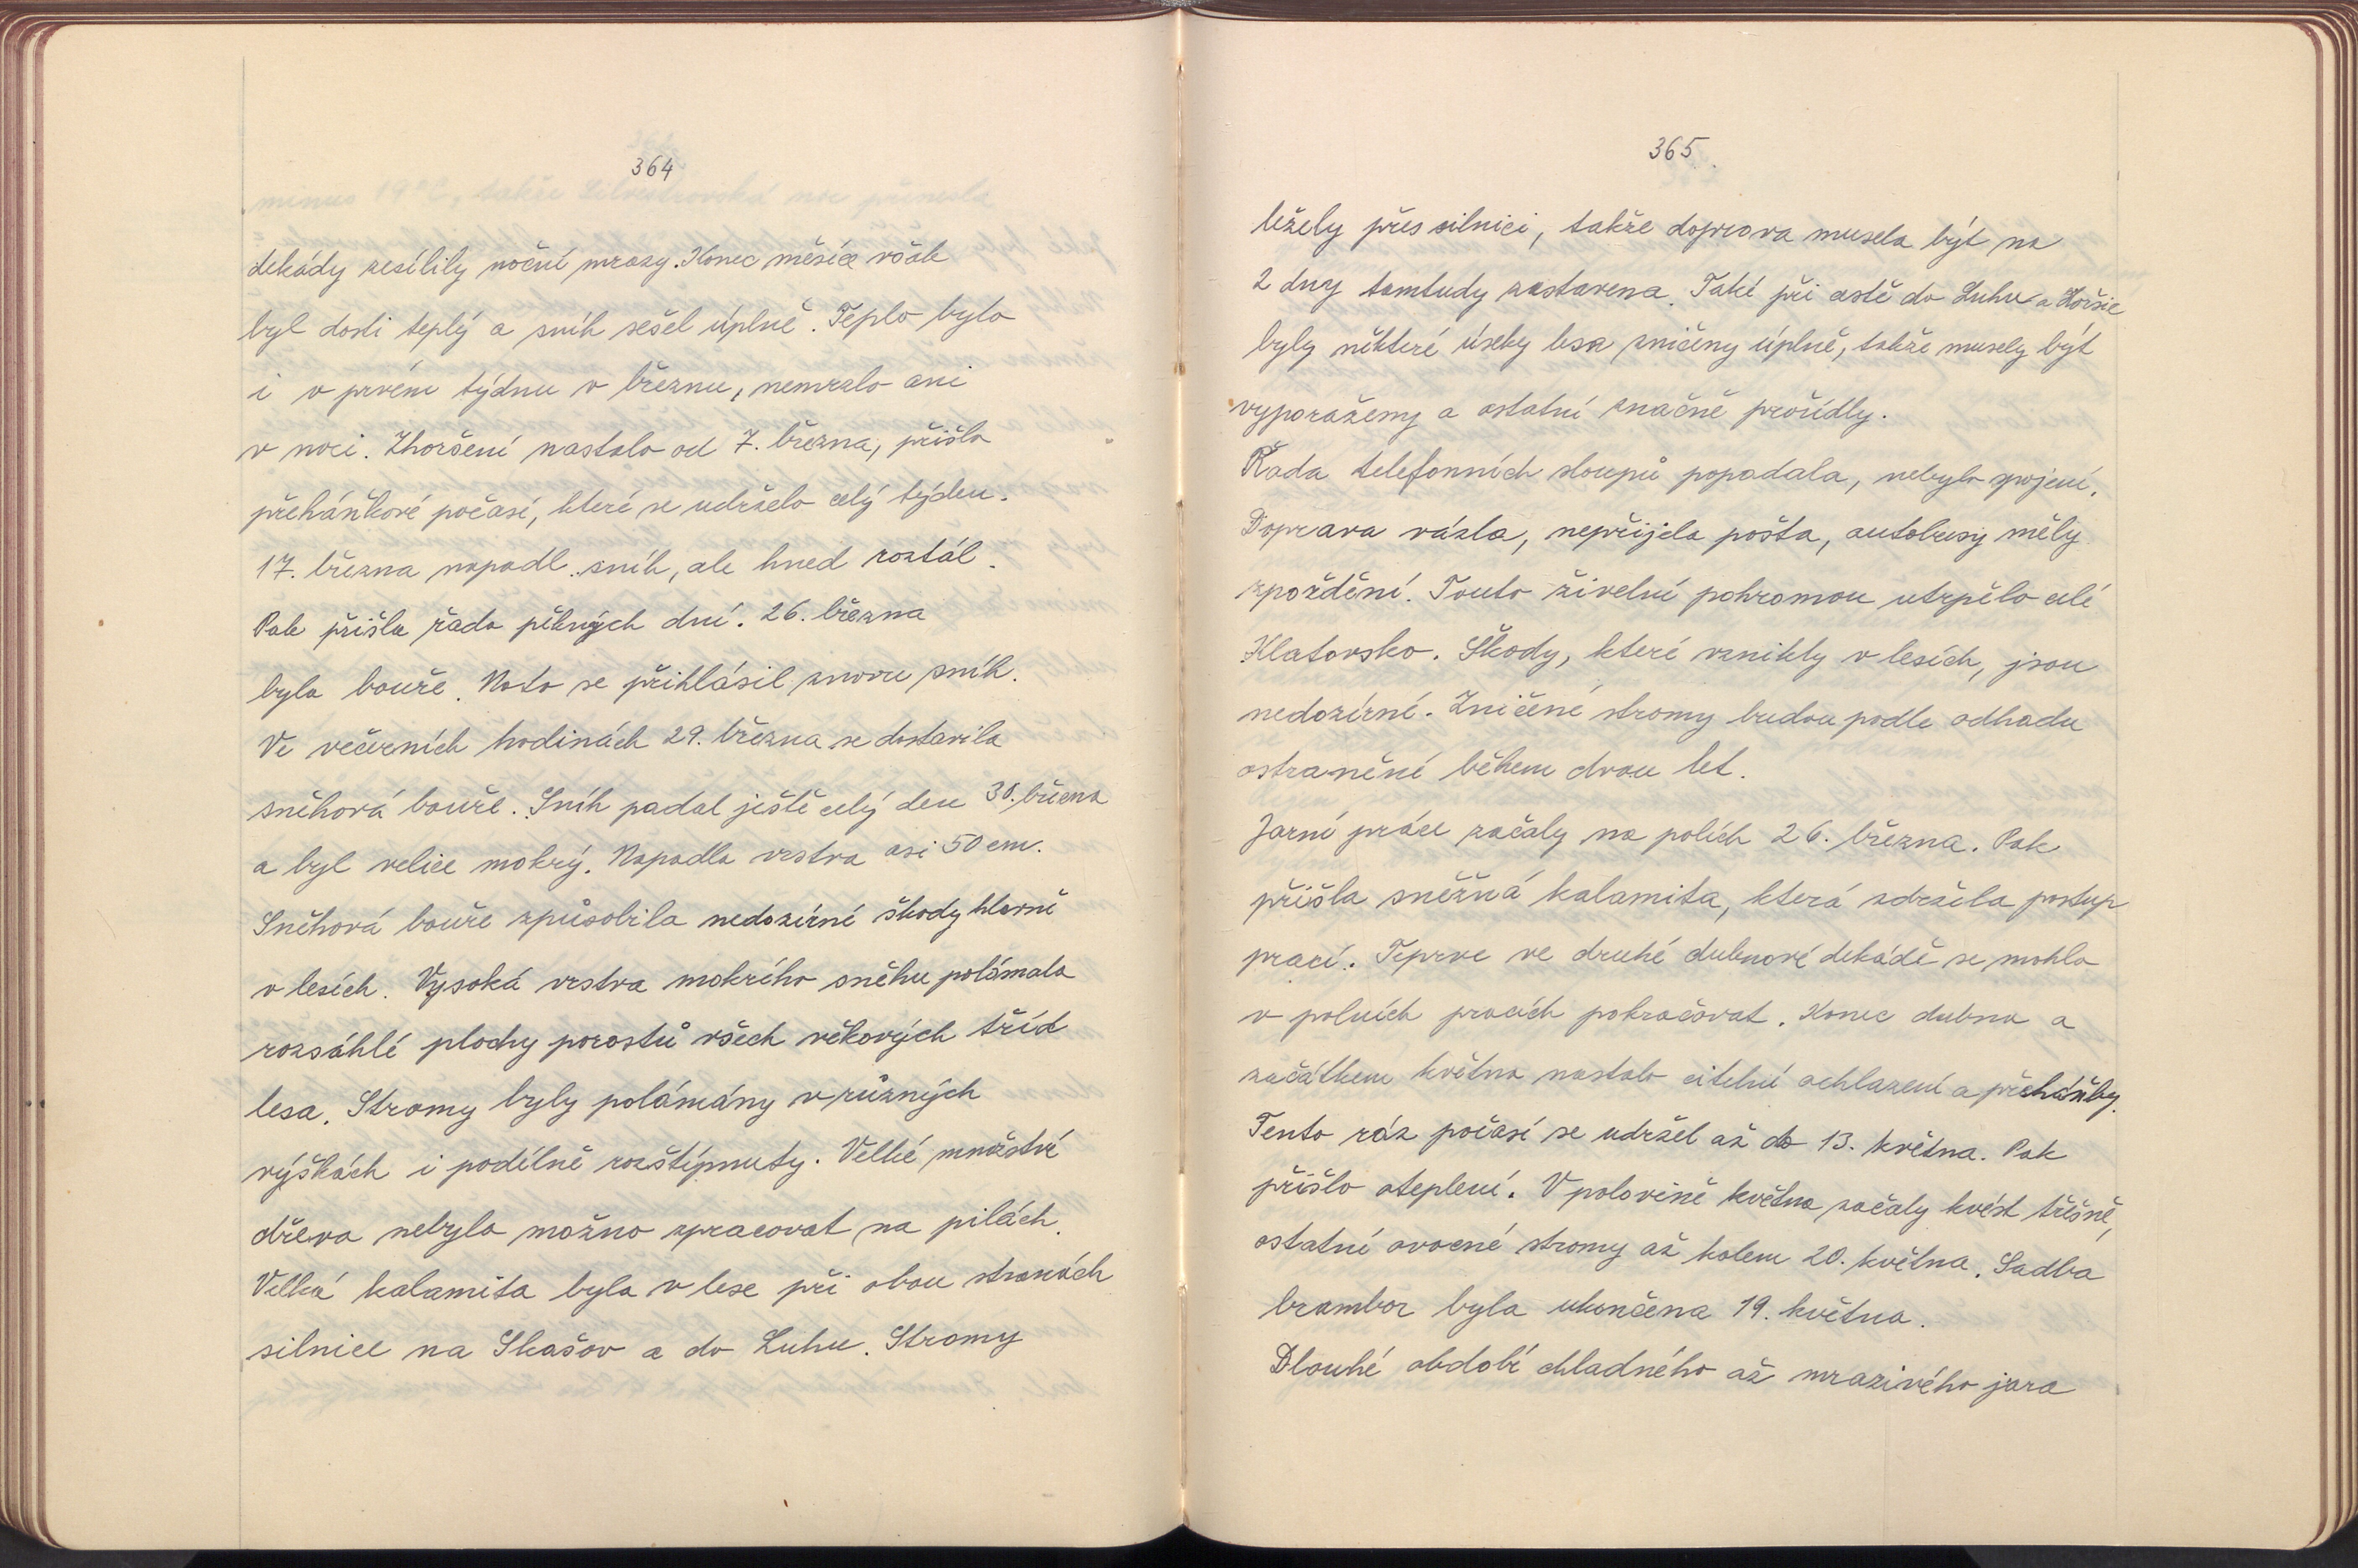 364
dekády zesílily noční mrazy. Konec měsíce však
byl dosti teplý a sníh sešel úplně. Teplo bylo
i v prvém týdnu v březnu, nemrzlo ani
v noci. Zhoršení nastalo od 7. března, přišlo
přeháňkové počasí, které se udrželo celý týden.
17. března napadl sníh, ale hned roztál.
Pak přišla řada pěkných dní. 26. března
byla bouře. Nato se přihlásil znovu sníh.
Ve večerních hodinách 29. března se dostavila
sněhová bouře. Sníh padal ještě celý den 30. března
a byl velice mokrý. Napadla vrstva asi 50 cm.
Sněhová bouře způsobila nedozírné škody hlavně
v lesích. Vysoká vrstva mokrého sněhu polámala
rozsáhlé plochy porostů všech věkových tříd
lesa. Stromy byly polámány v různých
výškách i podélně rozštípnuty. Velké množství
dřeva nebylo možno zpracovat na pilách.
Velká kalamita byla v lese při obou stranách
silnice na Skašov a do Luhu. Stromy
365.
ležely přes silnici, takže doprava musela být na
2 dny tamtudy zastavena. Také při cestě do Luhu a Horšic
byly některé úseky lesa zničeny úplně, takže musely být
vyporaženy a ostatní značně prořídly.
Řada telefonních sloupů popadala, nebylo spojení.
Doprava vázla, nepřijela pošta, autobusy měly
zpoždění. Touto živelní pohromou utrpělo celé
Klatovsko. Škody, které vznikly v lesích, jsou
nedozírné. Zničené stromy budou podle odhadu
ostranění během dvou let.
Jarní práce začaly na polích 26. března. Pak
přišla sněžná kalamita, která zdržela postup
prací. Teprve ve druhé dubnové dekádě se mohlo
v polních pracích pokračovat. Konec dubna a
začátkem května nastalo citelné ochlazení a přeháňky.
Tento ráz počasí se udržel až do 13. května. Pak
přišlo oteplení. V polovině května začaly kvést třešně,
ostatní ovocné stromy až kolem 20. května. Sadba
brambor byla ukončena 19. května.
Dlouhé období chladného až mrazivého jara